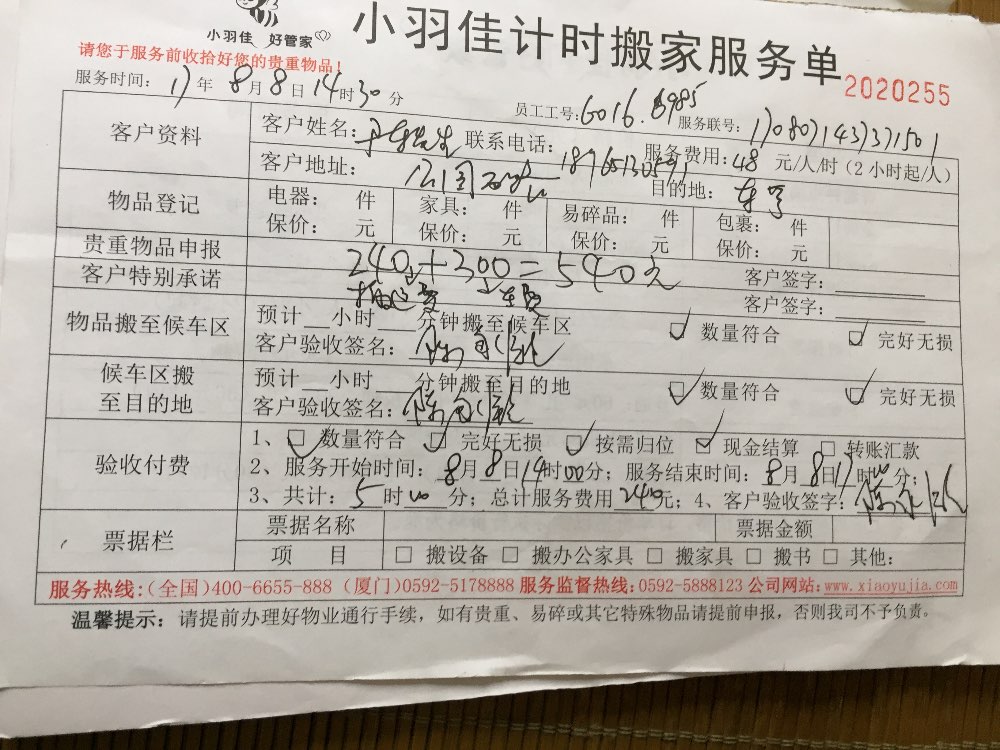 小羽佳 好管家
小羽佳计时搬家服务单
2020255
请您于服务前收拾好您的贵重物品！
服务时间：17年8月8日14时30分
员工工号：6016.6985 服务联号：1708071437371501
客户资料
客户姓名： 联系电话： 服务费用：48元/人/时（2小时起/人）
客户地址： 公园 目的地：
物品登记
电器： 件 家具： 件 易碎品： 件 包裹： 件
保价： 元 保价： 元 保价： 元 保价： 元
贵重物品申报
240+300=540元 客户签字：
搬运费 车费
客户特别承诺
客户签字：
物品搬至候车区
预计 小时 分钟搬至候车区 数量符合 完好无损
客户验收签名：
候车区搬
至目的地
预计 小时 分钟搬至目的地 数量符合 完好无损
客户验收签名：
验收付费
1、 数量符合 完好无损 按需归位 现金结算 转账汇款
2、服务开始时间：8月8日14时00分；服务结束时间：8月8日17时00分；
3、共计：5时00分；总计服务费用240元；4、客户验收签字：
票据栏
票据名称 票据金额
项 目 搬设备 搬办公家具 搬家具 搬书 其他：
服务热线：（全国）400-6655-888（厦门）0592-5178888 服务监督热线：0592-5888123 公司网站：www.xiaoyujia.com
温馨提示：请提前办理好物业通行手续，如有贵重、易碎或其它特殊物品请提前申报，否则我司不予负责。